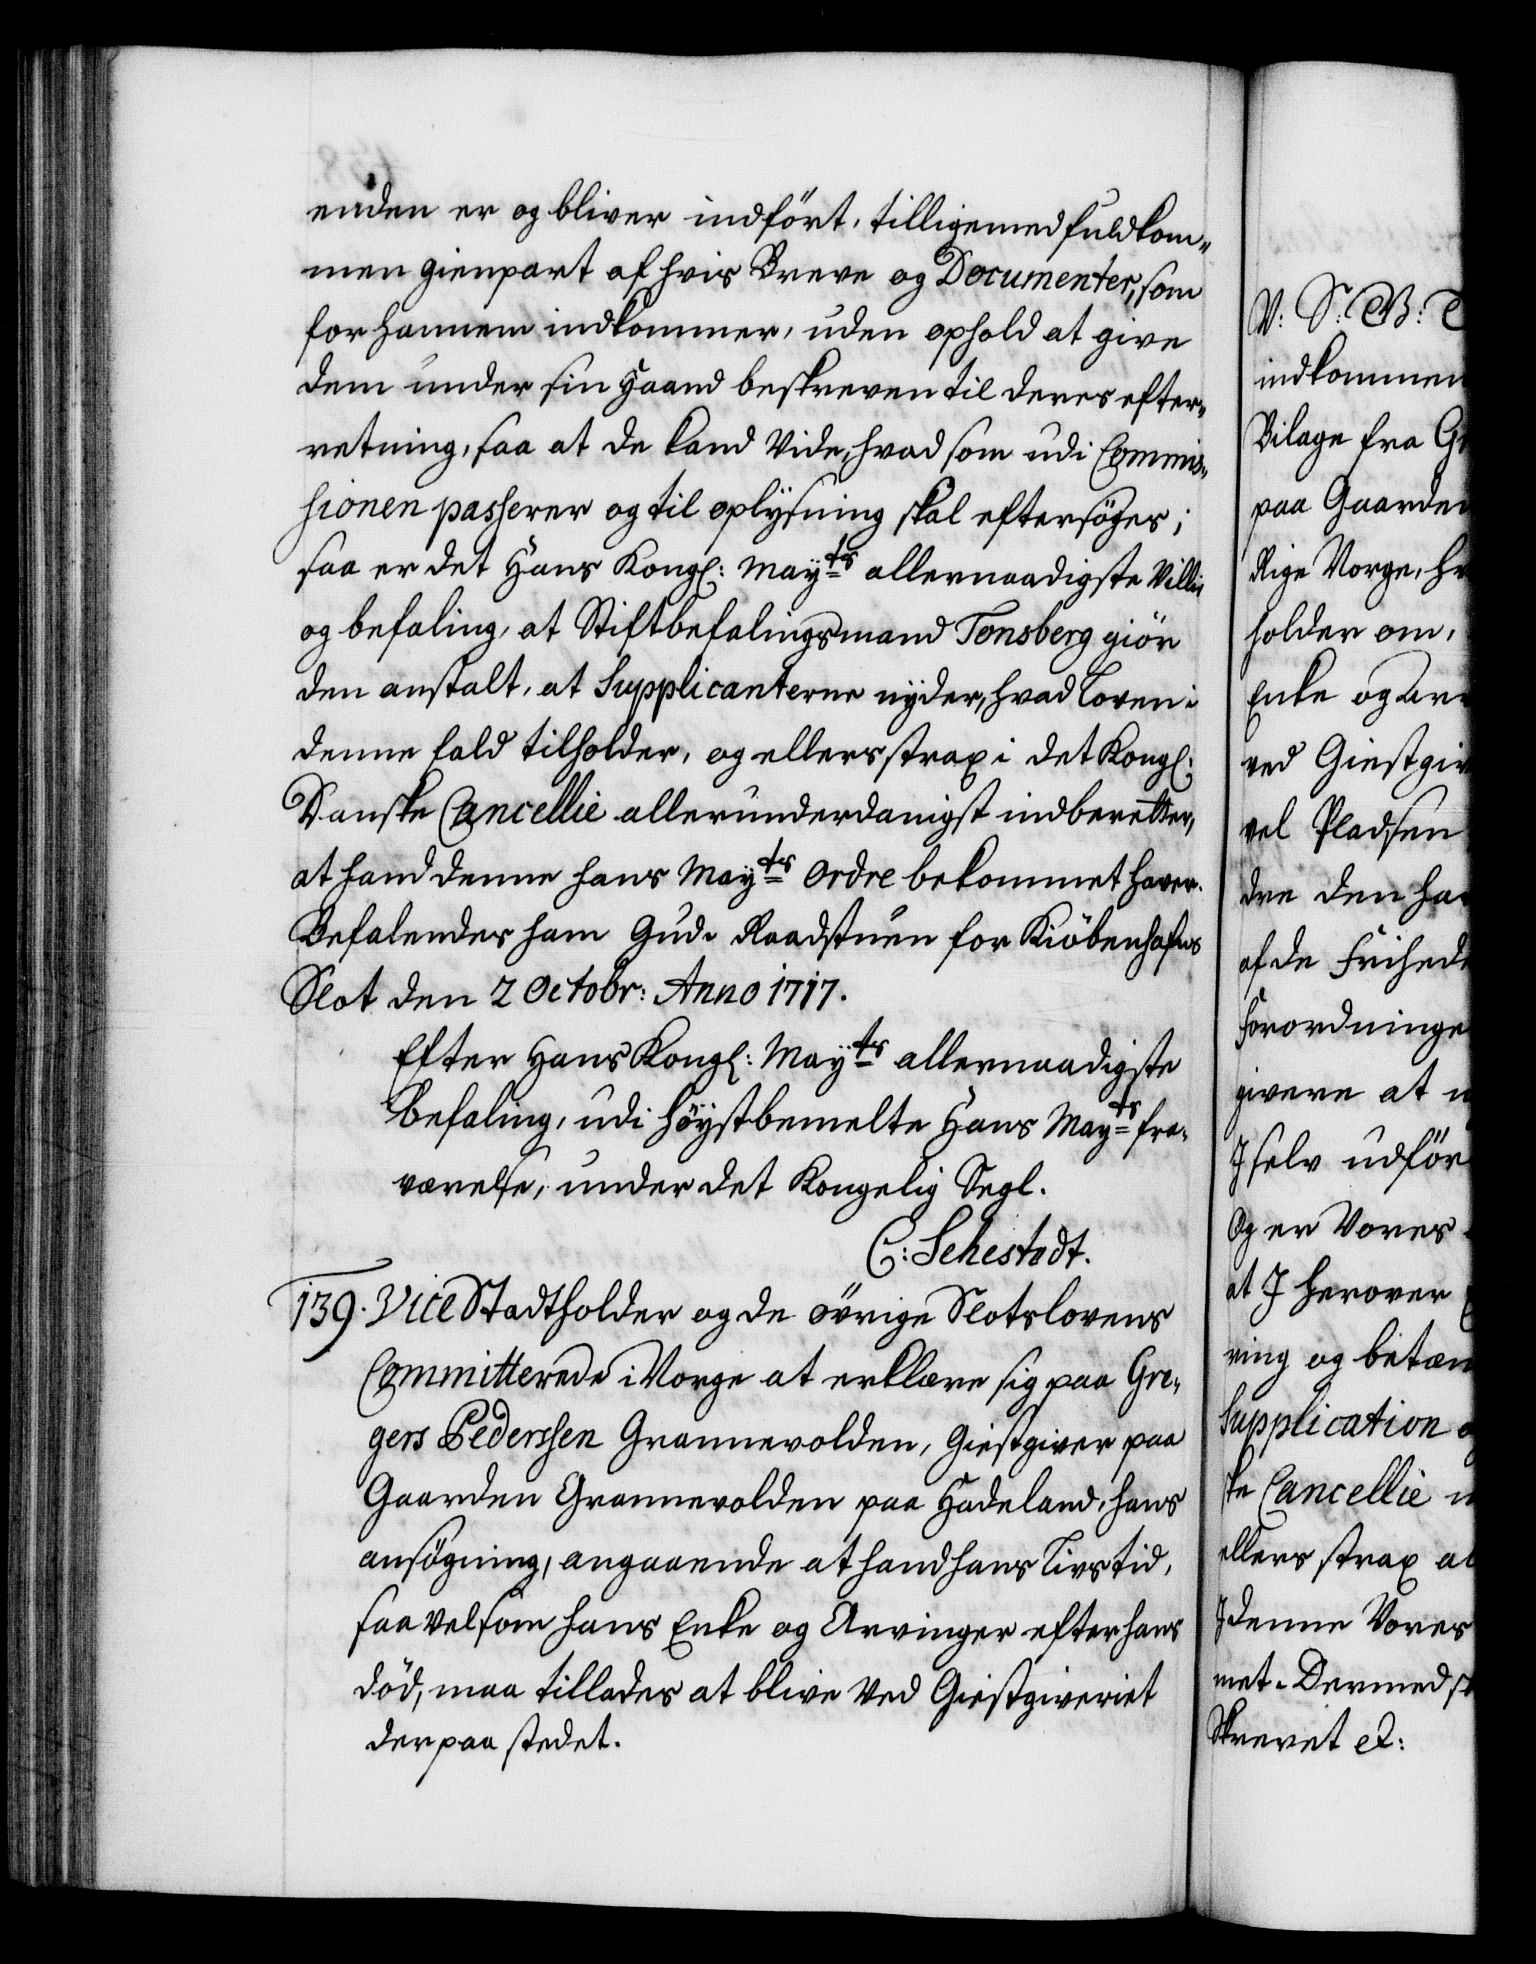 enden er og bliver indført, tilligemed fuldkom-
men gienpart af hvis Breve og Documenter, som
for hannem indkommer, uden ophold at give
dem under sin Haand beskreven til deres efter-
retning, saa at de kand Vide, hvad som udi Commis-
sionen passerer og til oplysning skal eftersøges;
saa er det Hans Kongl: Mayts allernaadigste Villie
og befaling, at Stiftbefalingsmand Tonsberg giør
den anstalt, at Supplicanterne nyder, hvad Loven i
denne fald tilholder, og ellers strax i det Kongl:
Danske Cancellie allerunderdanigst indberetter,
at hand denne hans Mayts Ordre bekommet haver.
Befalendes ham Gud. Raadstuen for Kiøbenhafns
Slot den 2 Octobr: Anno 1717.
Efter Hans Kongl: Mayts allernaadigste
befaling, udi høystbemelte Hans Mayts fra-
værelse, under det Kongelig Segl.
C: Sehestedt.
139. Vice Stadtholder og de øvrige Slotslovens
Committerede i Norge at erklære sig paa Gre-
gers Pederssen Grannevolden, Giestgiver paa
Gaarden Grannevolden paa Hadeland, hans
ansøgning, angaaende at hand hans Livs tid,
saavelsom hans Enke og Arvinger efter hans
død, maa tillades at blive Ved Giestgiveriet
der paa stedet.
V: S: G: T
indkommen
Bilage fra G
paa Gaarden
Rige Norge, h
holder om,
Enke og Arv
ved Giestgiv
vel Pladsen
dre den ha
af de Frihed
Forordninge
givere at n
I selv udfør
Og er Vores
at I herover
ring og betæn
Supplication
ske Cancellie
ellers strax al
I denne Vores
met. Dermed s
Skrevet etc: